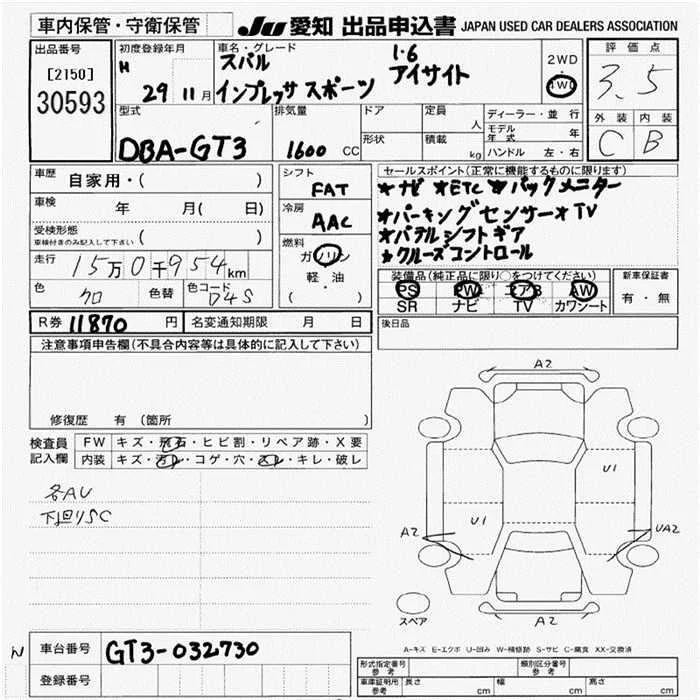 車内保管・守衛保管
JU 愛知 出品申込書 JAPAN USED CAR DEALERS ASSOCIATION
出品番号
[2150]
30593
初度登録年月
H 29 11月
車名・グレード
スバル 1.6
インプレッサスポーツ アイサイト
2WD
4WD
評価点
3.5
外装 内装
C B
型式
DBA-GT3
排気量
1600 CC
ドア
形状
定員 人
積載 kg
ディーラー・並行
モデル年式 年
ハンドル 左・右
車歴
自家用・( )
車検 年 月( 日)
受検形態
車検付きのみ記入して下さい ( )
走行
15万0千954km
色 クロ 色替 色コード D4S
シフト
FAT
冷房
AAC
燃料
ガソリン
軽・油
( )
セールスポイント(正常に機能するものに限ります)
★ナビ ★ETC ★バックモニター
★パーキングセンサー★TV
★パドルシフトギア
★クルーズコントロール
装備品(純正品に限り○をつけてください)
PS PW エアB AW
SR ナビ TV カワシート
新車保証書
有・無
R券 11870 円 名変通知期限 月 日
後日品
注意事項申告欄(不具合内容等は具体的に記入して下さい)
修復歴 有 (箇所 )
検査員記入欄
FW キズ・飛石・ヒビ割・リペア跡・X要
内装 キズ・汚れ・コゲ・穴・スレ・キレ・破レ
各AU
下回りSC
A2
U1
U1
A2
UA2
A2
スペア
A-キズ E-エクボ U-凹み W-補修跡 S-サビ C-腐食 XX-交換済
N
車台番号 GT3-032730
登録番号
形式指定番号 参考
類別区分番号 参考
車庫証明用 参考 長さ cm 幅 cm 高さ cm